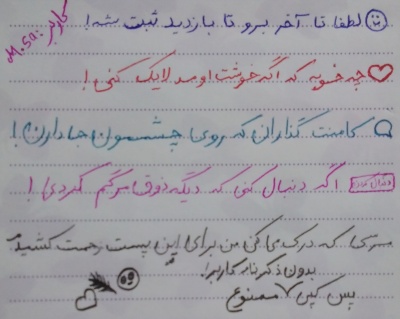 لطفا تا آخر برو تا بازدید ثبت بشه!
کاربر: M.sa
چه خوبه که اگه خوشت اومد لایک کنی!
کامنت گذاران که روی چشممون جا دارن!
دنبال کردن اگه دنبال کنی که دیگه ذوق مرگم کردی!
مرسی که درک می کنی من برای این پست زحمت کشیدم
بدون ذکر نام کاربر!
پس کپی ممنوع